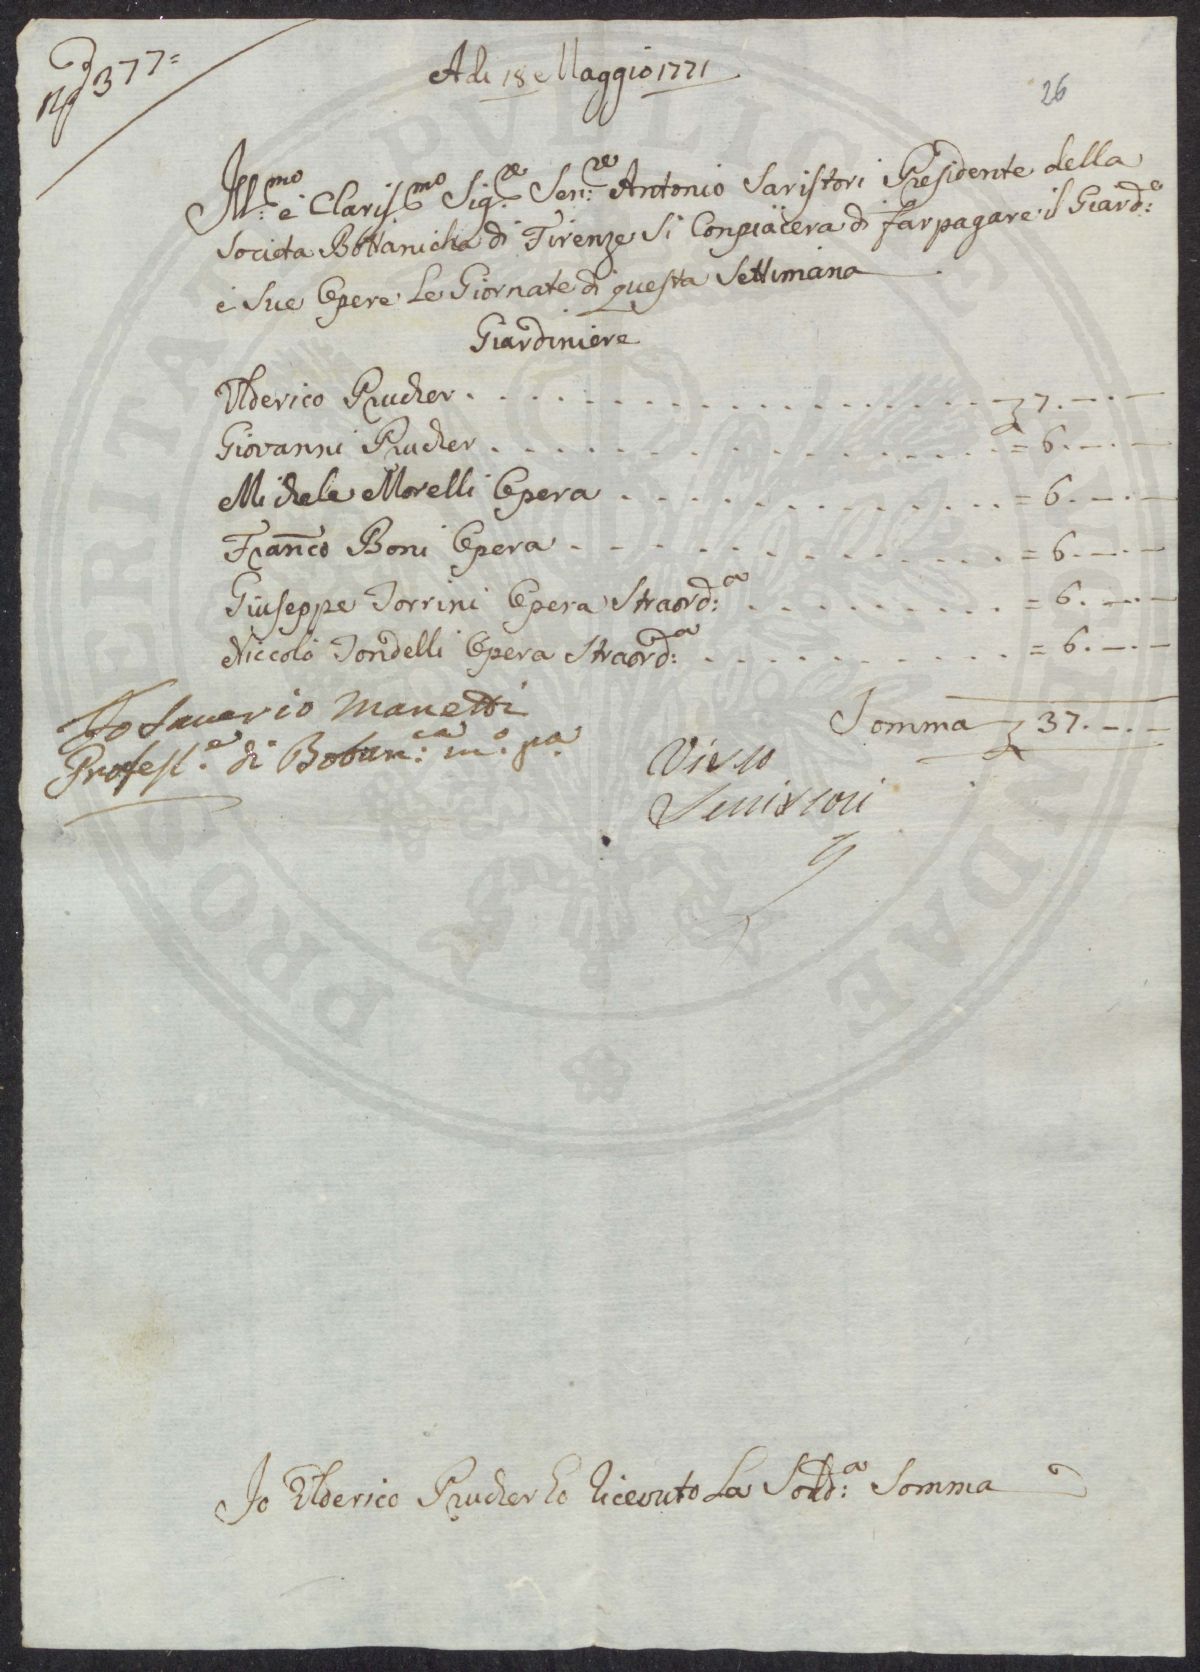 N.º 377=
A di 18 Maggio 1771
26
Ill:mo e Claris:mo Sig:re Sen:re Antonio Saristori Presidente della
Societa Bottanicha di Firenze Si Conpiacera di far pagare il Giard:e
e Sue Opere Le Giornate di questa Settimana
Giardiniere
Ulderico Prucher . . . . . . . . . . . . . . . . . . . . £ 7. — . —
Giovanni Prucher . . . . . . . . . . . . . . . . . . . = 6. — . —
Michele Morelli Opera . . . . . . . . . . . . . = 6. — . —
Franco Boni Opera . . . . . . . . . . . . . . . = 6. — . —
Giuseppe Torrini Opera Straord:a . . . . . . . . . = 6. — . —
Niccolò Tondelli Opera Straord:a . . . . . . . . . . = 6. — . —
Somma £ 37. — . —
Io Saverio Manetti
Profess:e di Botan:ca m:o p:a
Visto
Serristori
Io Ulderico Prucher ho ricevuto La Sodd:a Somma
PROSPERITATI PVBLICAE AVGENDAE